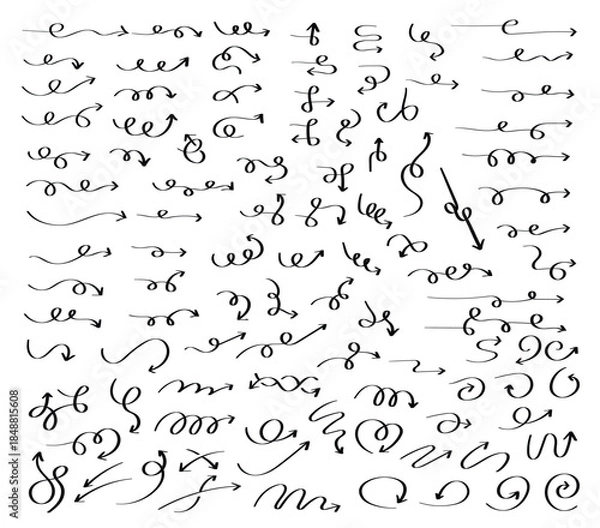 Adobe Stock | #1848815608